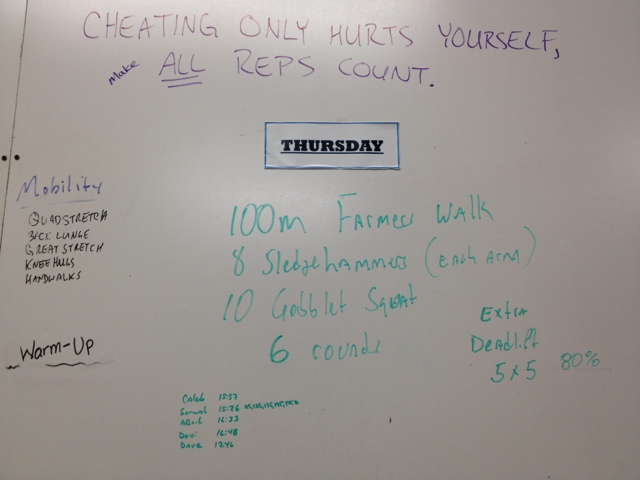 CHEATING ONLY HURTS YOURSELF,
Make ALL REPS COUNT.
THURSDAY
Mobility
QUADSTRETCH
BACK LUNGE
GREAT STRETCH
KNEE HUGS
HANDWALKS
Warm-Up
100m Farmers Walk
8 Sledgehammers (Each Arm)
10 Gobblet Squat
6 rounds
Extra
Deadlift
5x5 80%
Caleb 15:57
15:26
16:33
16:48
Dave 17:46